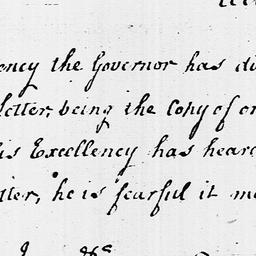 ency the Governor has di
letter, being the Copy of or
is Excellency has hear
tter, he is fearful it m